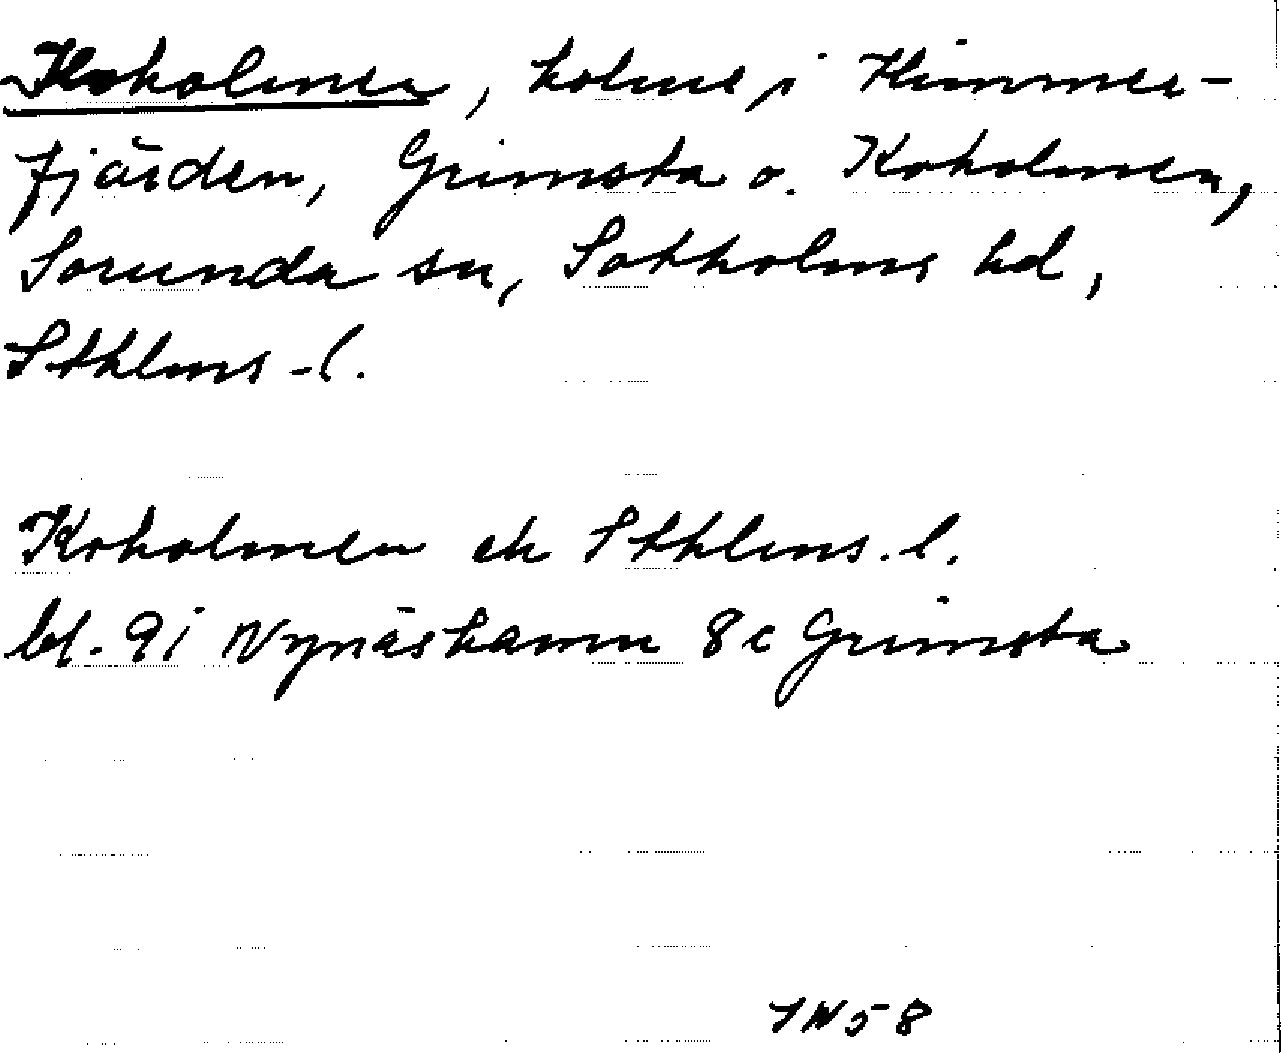 Koholmen, holme i Himmer-
fjärden, Grimsta o. Koholmen,
Sorunda sn, Sotholms hd,
Sthlms-l.
Koholmen ek Sthlms.l.
bl. 9i Nynäshamn 8c Grimsta
IN58